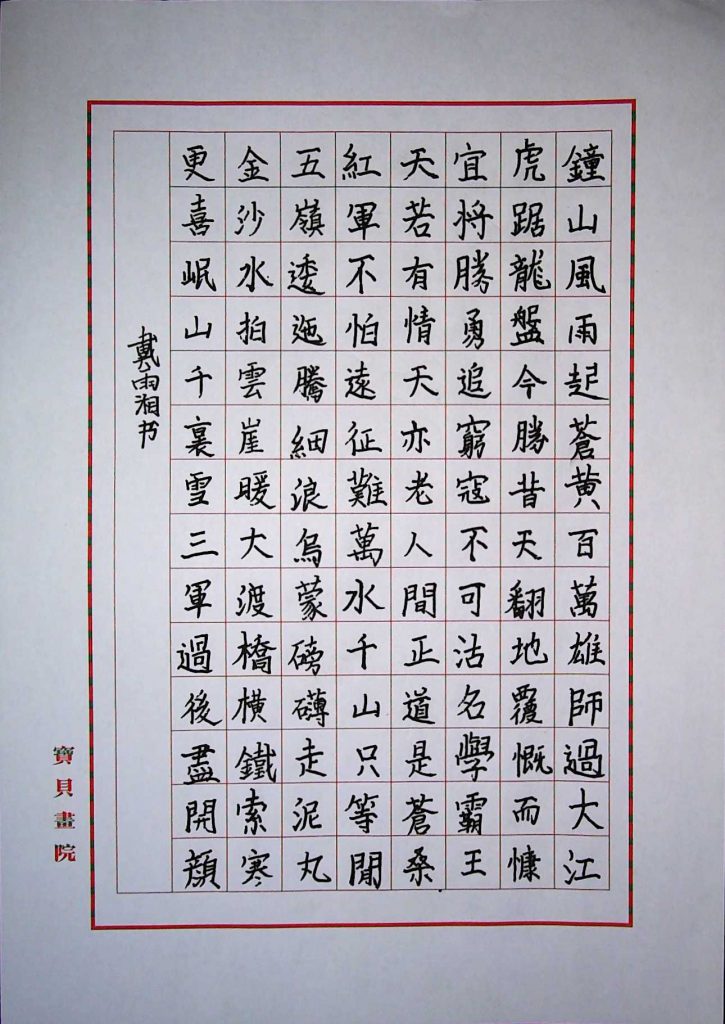 鐘山風雨起蒼黄百萬雄師過大江
虎踞龍盤今勝昔天翻地覆慨而慷
宜将勝勇追窮寇不可沽名學霸王
天若有情天亦老人間正道是蒼桑
紅軍不怕遠征難萬水千山只等閒
五嶺逶迤騰細浪烏蒙磅礴走泥丸
金沙水拍雲崖暖大渡橋横鐵索寒
更喜岷山千裏雪三軍過後盡開顔
戴雨湘书
寶貝畫院